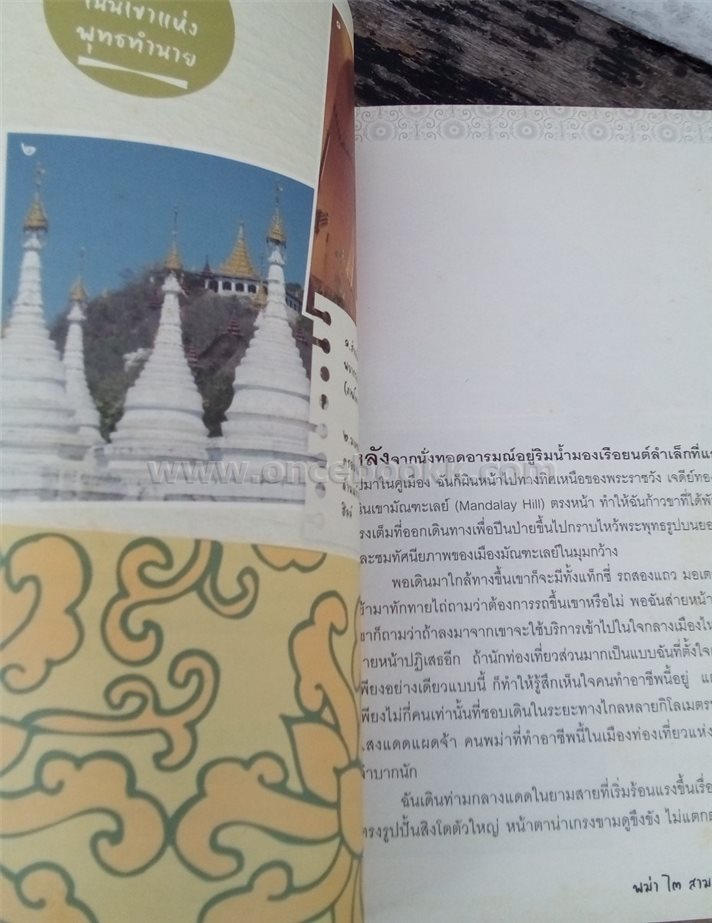 เนินเขาแห่ง
พุทธทำนาย
๒
หลังจากนั่งทอดอารมณ์อยู่ริมน้ำมองเรือยนต์ลำเล็กที่แ
ไปมาในคูเมือง ฉันก็ผินหน้าไปทางทิศเหนือของพระราชวัง เจดีย์ทอง
เนินเขามัณฑะเลย์ (Mandalay Hill) ตรงหน้า ทำให้ฉันก้าวขาที่ได้พั
แรงเต็มที่ออกเดินทางเพื่อปีนป่ายขึ้นไปกราบไหว้พระพุทธรูปบนยอ
และชมทัศนียภาพของเมืองมัณฑะเลย์ในมุมกว้าง
พอเดินมาใกล้ทางขึ้นเขาก็จะมีทั้งแท็กซี่ รถสองแถว มอเต
เข้ามาทักทายไถ่ถามว่าต้องการรถขึ้นเขาหรือไม่ พอฉันส่ายหน้า
เขาก็ถามว่าถ้าลงมาจากเขาจะใช้บริการเข้าไปในใจกลางเมืองไ
ส่ายหน้าปฏิเสธอีก ถ้านักท่องเที่ยวส่วนมากเป็นแบบฉันที่ตั้งใจ
เพียงอย่างเดียวแบบนี้ ก็ทำให้รู้สึกเห็นใจคนทำอาชีพนี้อยู่ แ
เพียงไม่กี่คนเท่านั้นที่ชอบเดินในระยะทางไกลหลายกิโลเมตร
แสงแดดแผดจ้า คนพม่าที่ทำอาชีพนี้ในเมืองท่องเที่ยวแห่ง
ลำบากนัก
ฉันเดินท่ามกลางแดดในยามสายที่เริ่มร้อนแรงขึ้นเรื่อ
ตรงรูปปั้นสิงโตตัวใหญ่ หน้าตาน่าเกรงขามดูขึงขัง ไม่แตก
พม่า ไต สาม